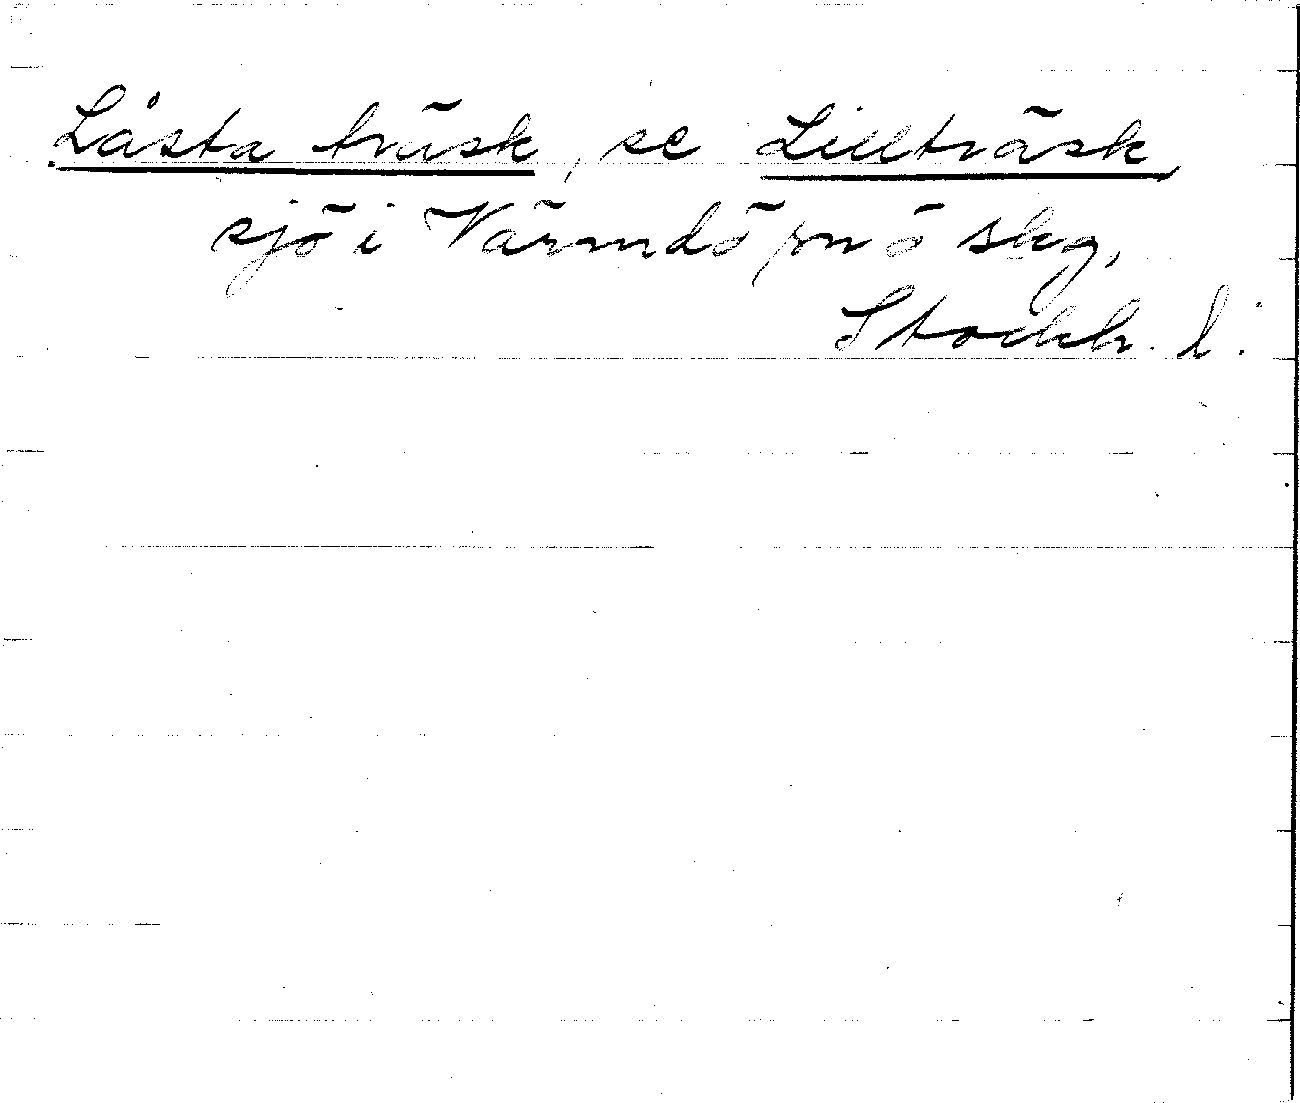 Låsta träsk, se Lillträsk,
sjö i Värmdö sn o skg,
Stockh. l.